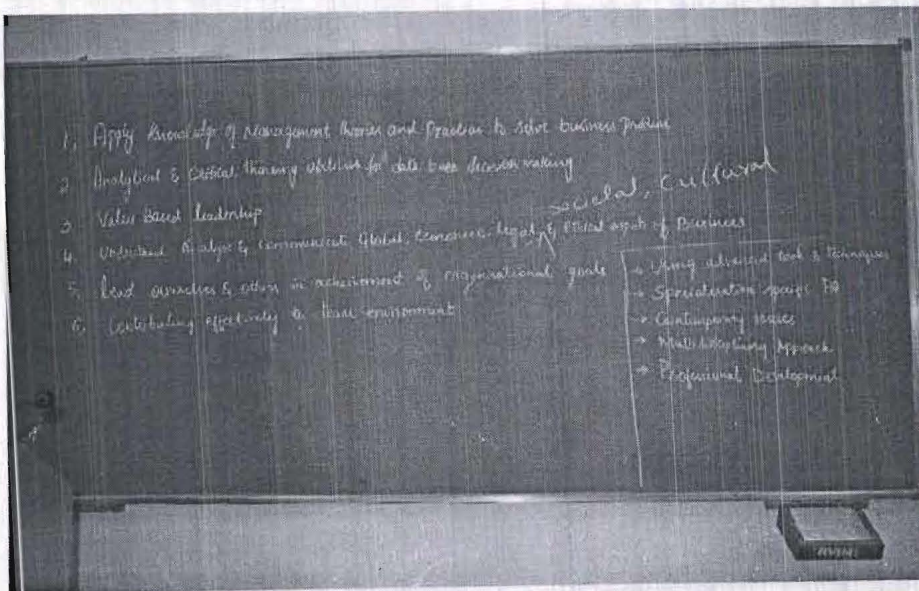 1, Apply knowledge of management theories and Practices to solve business
2 Analytical & Critical thinking abilities for data base decision making
3 Value Based leadership
societal, Cultural
4. Understand Analyse & Communicate Global, Economic, legal, & Ethical aspects of Business
5, Lead ourselves & others in achievement of organisational goals
6, Contributing effectively to team environment
→ Using advanced tools & techniques
→ Specialisation specific
→ Contemporary issues
→ Multidisciplinary Approach
→ Professional Development